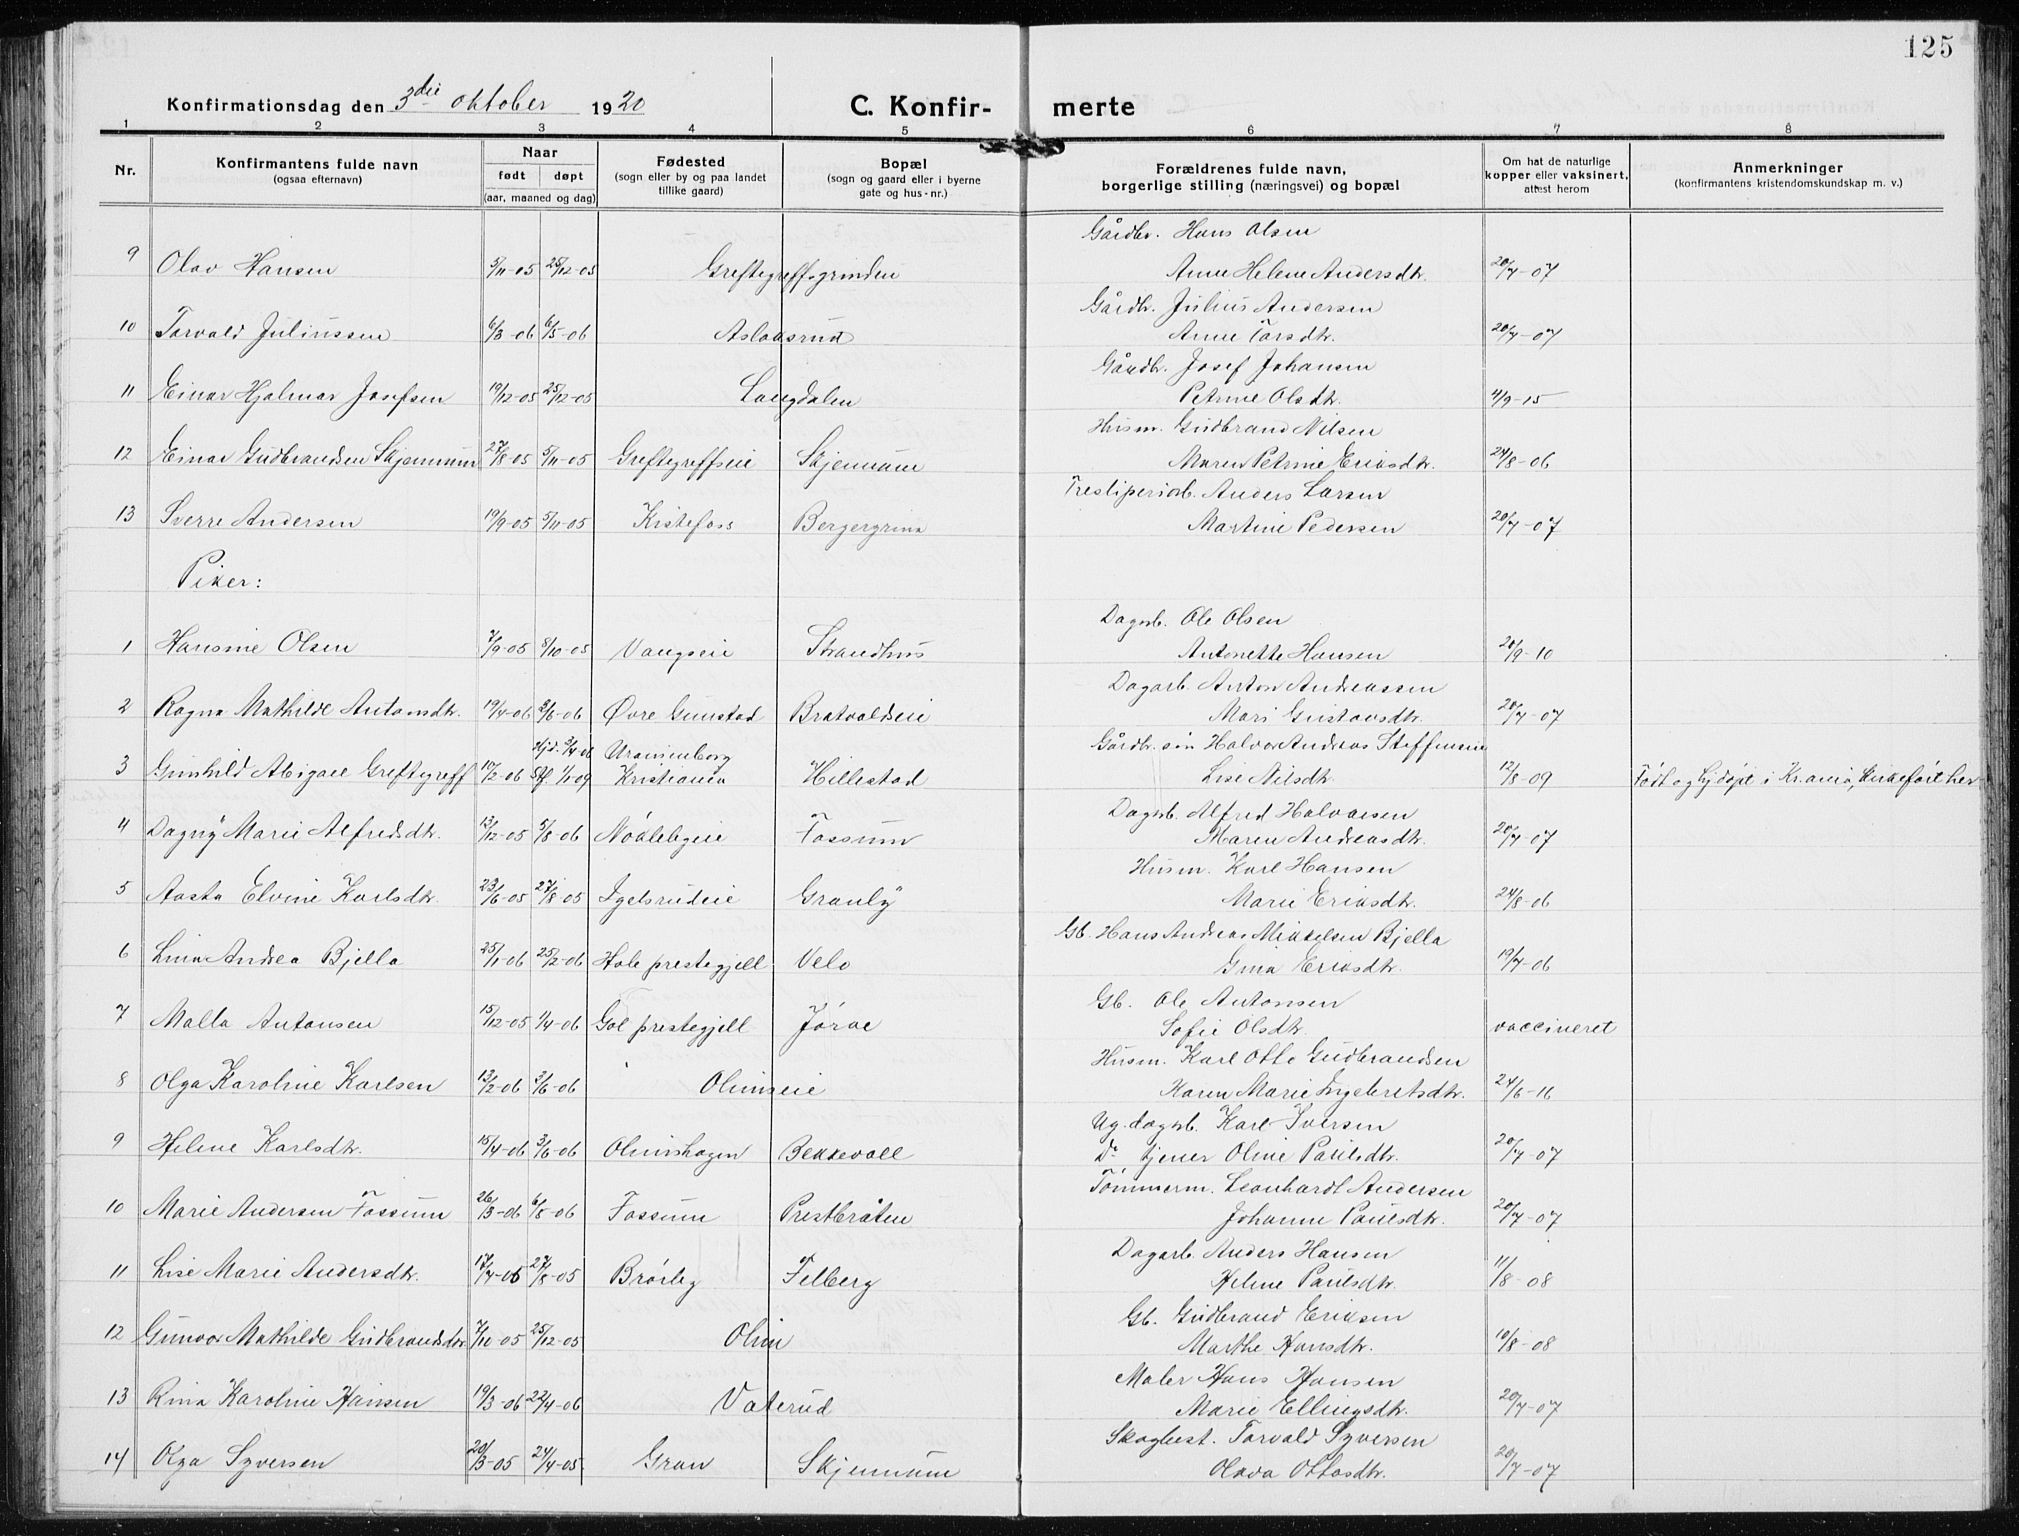 125
Konfirmationsdag den 3die oktober 1920
C. Konfirmerte
1 2 3 4 5 6 7 8
Nr.
Konfirmantens fulde navn
(ogsaa efternavn)
Naar
født døpt
(aar, maaned og dag)
Fødested
(sogn eller by og paa landet
tillike gaard)
Bopæl
(sogn og gaard eller i byerne
gate og hus-nr.)
Forældrenes fulde navn,
borgerlige stilling (næringsvei) og bopæl
Om hat de naturlige
kopper eller vaksinert,
attest herom
Anmerkninger
(konfirmantens kristendomskundskap m. v.)
Gårdbr. Hans Olsen
9 Olav Hansen 5/11-05 25/12-05 Greftegreffsgrinden Anne Helene Andersdtr. 20/7-07
Gårdbr. Julius Andersen
10 Torvald Juliussen 6/3-06 6/5-06 Aslaksrud Anne Larsdtr. 20/7-07
Gårdbr. Josef Johansen
11 Einar Hjalmar Josefsen 19/12-05 25/12-05 Langdalen Petrine Olsdtr. 4/9-15
Husm. Gudbrand Nilsen
12 Einar Gudbrandsen Skjennum 27/8-05 5/11-05 Greftegreffseie Skjennum Maren Petrine Eriksdtr. 24/8-06
Tresliperiarb. Anders Larsen
13 Sverre Andersen 19/9-05 5/11-05 Kistefoss Bergergrina Martine Pedersen 20/7-07
Piker:
Dagarb. Ole Olsen
1 Hansine Olsen 7/9-05 8/10-05 Vangseie Strandhus Antonette Hansen 20/9-10
Dagarb. Anton Andreassen
2 Ragna Mathilde Antonsdtr. 19/4-06 3/6-06 Øvre Gunstad Bratvaldseie Mari Gustavsdtr. 20/7-07
Hjd. 3/4-06 Uranienborg Gårdbr. søn Halvor Andreas Steffensen
3 Gunhild Abigael Greftegreff 10/2-06 Stf. 1/1-09 Kristiania Hillestad Lise Nilsdtr. 12/8-09 Født og hjdøpt i Kr.ania, kirkeført her
Dagarb. Alfred Halvorsen
4 Dagny Marie Alfredsdtr. 13/12-05 5/8-06 Nøklebyeie Fossum Maren Andreasdtr. 20/7-07
Husm. Karl Hansen
5 Aasta Elvine Karlsdtr. 23/6-05 27/8-05 Igelsrudeie Granly Marie Eriksdtr. 24/8-06
Gb. Hans Andreas Mikkelsen Bjella
6 Lina Andrea Bjella 25/1-06 25/2-06 Hole prestegjell Velo Gina Eriksdtr. 19/7-06
Gb. Ole Antonsen
7 Malla Antonsen 15/12-05 1/4-06 Gol prestegjell Jørae Sofie Olsdtr. vaccineret
Husm. Karl Otto Gudbrandsen
8 Olga Karoline Karlsen 13/2-06 3/6-06 Olimseie Karen Marie Engebretsdtr. 24/6-16
Ug. dagarb. Karl Iversen
9 Helene Karlsdtr. 15/4-06 3/6-06 Olimshagen Bekkevold Do tjener Oline Paulsdtr. 20/7-07
Tømmerm. Leonhardt Andersen
10 Marie Andersen Fossum 26/3-06 6/8-06 Fossum Prestbråten Johanne Paulsdtr. 20/7-07
Dagarb. Anders Hansen
11 Lise Marie Andersdtr. 17/7-05 27/8-05 Brørby Felberg Helene Paulsdtr. 11/8-08
Gb. Gudbrand Eriksen
12 Gunvor Mathilde Gudbrandsdtr. 7/10-05 25/12-05 Olim Marthe Hansdtr. 10/8-08
Maler Hans Hansen
13 Rina Karoline Hansen 19/3-06 22/4-06 Vaterud Marie Ellingsdtr. 20/7-07
Skogbest. Torvald Syversen
14 Olga Syversen 20/3-05 24/4-05 Gran Skjennum Olava Ottosdtr. 20/7-07